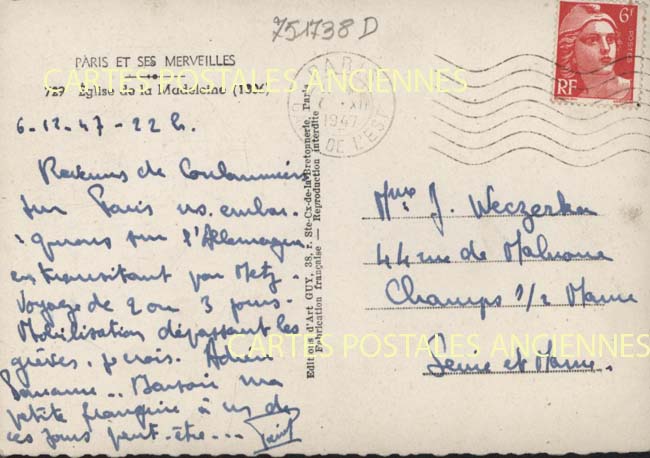 751738 D
PARIS ET SES MERVEILLES
729 Église de la Madeleine (1806)
CARTES POSTALES ANCIENNES
6-12-47-22 h.
Revenus de Coulommiers
sur Paris ns. embar-
quons sur l'Allemagne
en transitant par Metz.
Voyage de 2 ou 3 jours.
Mobilisation dépassant les
grèves. je crois.
petite française à un de
ces jours peut-être...
Editions d'Art GUY, 38, r. Ste-Cx-de-la-Bretonnerie, Paris
Fabrication française — Reproduction interdite
PARIS
XII
1947
DE L'EST
6F
POSTES
RF
Mme J. Weczerka
44 rue de Malnoue
Champs s/ Marne
Seine et Marne.
CARTES POSTALES ANCIENNES